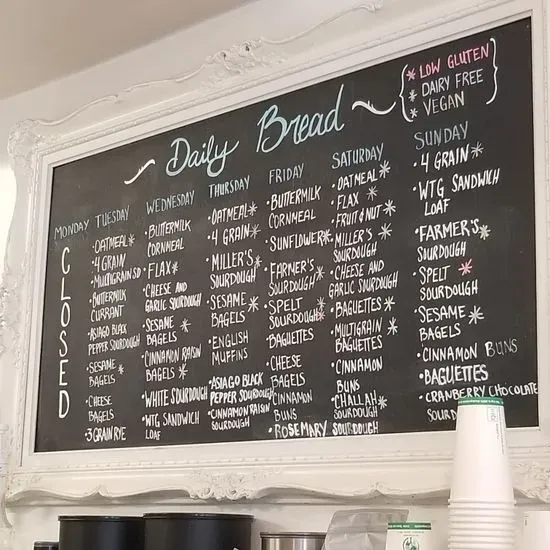 Daily Bread
* LOW GLUTEN
* DAIRY FREE
* VEGAN
MONDAY
CLOSED
TUESDAY
• OATMEAL*
• 4 GRAIN
• MULTIGRAIN SD
• BUTTERMILK
CURRANT
• ASIAGO BLACK
PEPPER SOURDOUGH
• SESAME
BAGELS *
• CHEESE
BAGELS
• 3 GRAIN RYE
WEDNESDAY
• BUTTERMILK
CORNMEAL
• FLAX*
• CHEESE AND
GARLIC SOURDOUGH
• SESAME *
BAGELS
• CINNAMON RAISIN
BAGELS *
• WHITE SOURDOUGH
• WTG SANDWICH
LOAF
THURSDAY
• OATMEAL*
• 4 GRAIN *
• MILLER'S *
SOURDOUGH
• SESAME *
BAGELS
• ENGLISH
MUFFINS
• ASIAGO BLACK
PEPPER SOURDOUGH
• CINNAMON RAISIN
SOURDOUGH
FRIDAY
• BUTTERMILK
CORNMEAL
• SUNFLOWER*
• FARMER'S *
SOURDOUGH
• SPELT
SOURDOUGH *
• BAGUETTES
• CHEESE
BAGELS
• CINNAMON
BUNS
• ROSEMARY SOURDOUGH
SATURDAY
• OATMEAL *
• FLAX *
• FRUIT & NUT *
• MILLER'S *
SOURDOUGH
• CHEESE AND
GARLIC SOURDOUGH
• BAGUETTES *
• MULTIGRAIN *
BAGUETTES
• CINNAMON
BUNS
• CHALLAH *
SOURDOUGH
SUNDAY
• 4 GRAIN *
• WTG SANDWICH
LOAF
• FARMER'S *
SOURDOUGH
• SPELT *
SOURDOUGH
• SESAME *
BAGELS
• CINNAMON BUNS
• BAGUETTES
• CRANBERRY CHOCOLATE